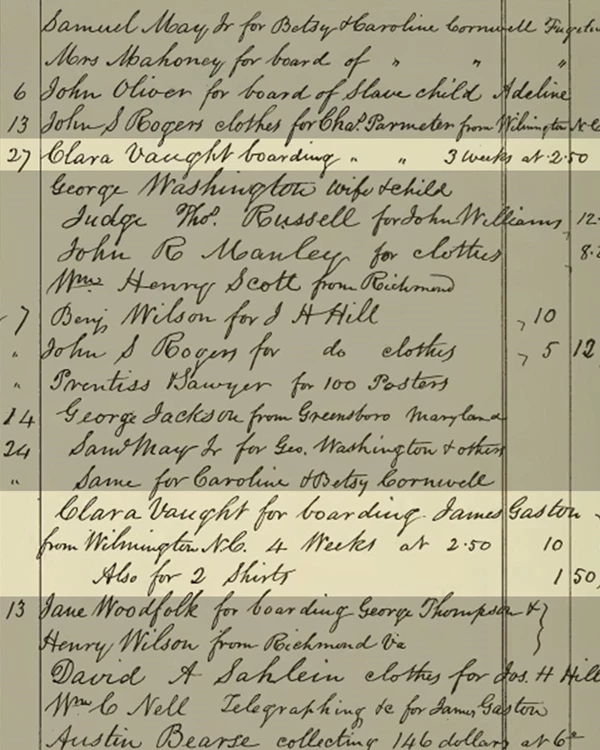 Samuel May Jr for Betsy & Caroline Cornwell
Mrs Mahoney for board of " " "
6 John Oliver for board of Slave child Adeline
13 John S Rogers clothes for Chas. Parmeter from Wilmington N.C
27 Clara Vaught boarding " " 3 weeks at 2.50
George Washington wife & child
Judge Thos. Russell for John Williams 12
John R Manley for clothes 8.
Wm. Henry Scott from Richmond
7 Benj Wilson for J H Hill 10
" John S Rogers for do clothes 5 12
" Prentiss & Sawyer for 100 Posters
14 George Jackson from Greensboro Maryland
24 Saml May Jr for Geo. Washington & others
" Same for Caroline & Betsy Cornwell
Clara Vaught for boarding James Gaston
from Wilmington N.C. 4 Weeks at 2.50 10
Also for 2 Shirts 1 50
13 Jane Woodfolk for boarding George Thompson &
Henry Wilson from Richmond Va
David A Sahlein clothes for Jos. H Hill
Wm C Nell Telegraphing &c for James Gaston
Austin Bearse collecting 146 dollars at 6